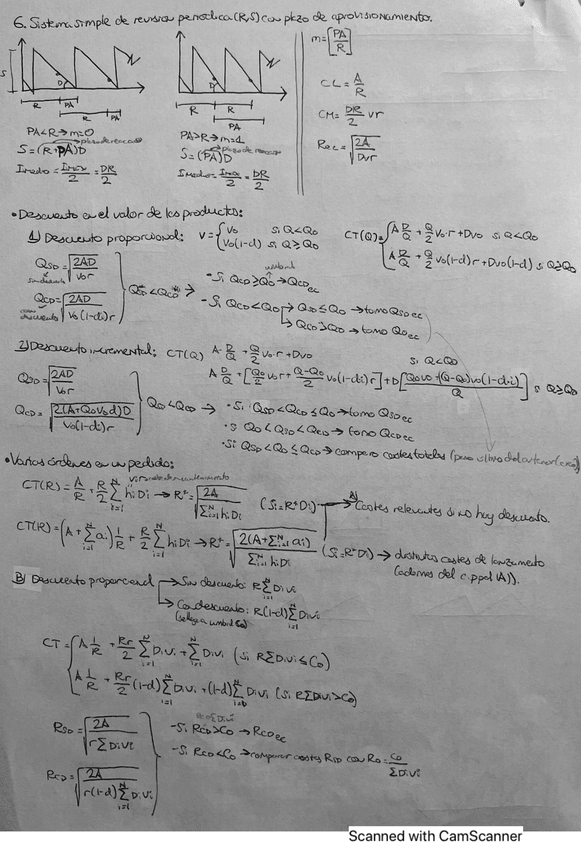 6. Sistema simple de revisión periódica (R,S) con plazo de aprovisionamiento.
S
D
R
PA
R
PA
PA<R → m=0
plazo de reacción
S=(R+PA)D
Imedio = Imax/2 = DR/2
D
R
R
PA
PA>R → m=1
plazo de reacción
S=(PA)D
Imedio = Imax/2 = DR/2
m=[PA/R]
CL = A/R
CM = DR/2 vr
REC = √(2A/Dvr)
• Descuento en el valor de los productos:
1) Descuento proporcional: v = { v0 si Q<Q0
v0(1-d) si Q≥Q0
CT(Q) = { A D/Q + Q/2 v0·r + Dv0 si Q<Q0
A D/Q + Q/2 v0(1-d)r + Dv0(1-d) si Q≥Q0
QSD = √(2AD/v0r)
sin descuento
QCD = √(2AD/v0(1-d)r)
con descuento
QSD<QCD →
umbral
- Si QCD≥Q0 → QCD EC
- Si QCD<Q0 → QSD≤Q0 → tomo QSD EC
→ QCD>Q0 → tomo Q0 EC
2) Descuento incremental: CT(Q) A·D/Q + Q/2 v0·r + Dv0 si Q<Q0
A D/Q + [Q0/2 v0r + Q-Q0/2 v0(1-di)r] + D[Q0v0+(Q-Q0)v0(1-di)/Q] si Q≥Q0
QSD = √(2AD/v0r)
QCD = √(2(A+Q0v0d)D/v0(1-di)r)
QSD<QCD →
- Si QSD<QCD≤Q0 → tomo QSD EC
- Si Q0<QSD<QCD → tomo QCD EC
- Si QSD<Q0≤QCD → comparo costes totales
• Varias órdenes en un pedido:
CT(R) = A/R + R/2 Σ(i=1,N) hiDi → R* = √(2A/Σ(i=1,N) hiDi) (Si=R*Di)
A) Costes relevantes si no hay descuento.
CT(R) = (A + Σ(i=1,N) ai) 1/R + R/2 Σ(i=1,N) hiDi → R* = √(2(A+Σ(i=1,N) ai)/Σ(i=1,N) hiDi) (Si=R*Di) → distintos costes de lanzamiento
(además del c. ppal (A)).
B) Descuento proporcional → Sin descuento: RΣ(i=1,N) Divi
→ Con descuento: R(1-d)Σ(i=1,N) Divi
(se llega a umbral C0)
CT = { A 1/R + Rr/2 Σ(i=1,N) Divi + Σ(i=1,N) Divi (si RΣDivi≤C0)
A 1/R + Rr/2 (1-d)Σ(i=1,N) Divi + (1-d)Σ Divi (si RΣDivi>C0)
RSD = √(2A/rΣDivi)
RCD = √(2A/r(1-d)Σ(i=1,N) Divi)
- Si RCD>C0 → RCD EC
- Si RCD<C0 → comparar costes RSD con R0 = C0/ΣDivi
Scanned with CamScanner